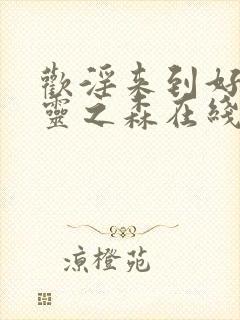 歡淫来到好
靈之森在綫
涼橙苑